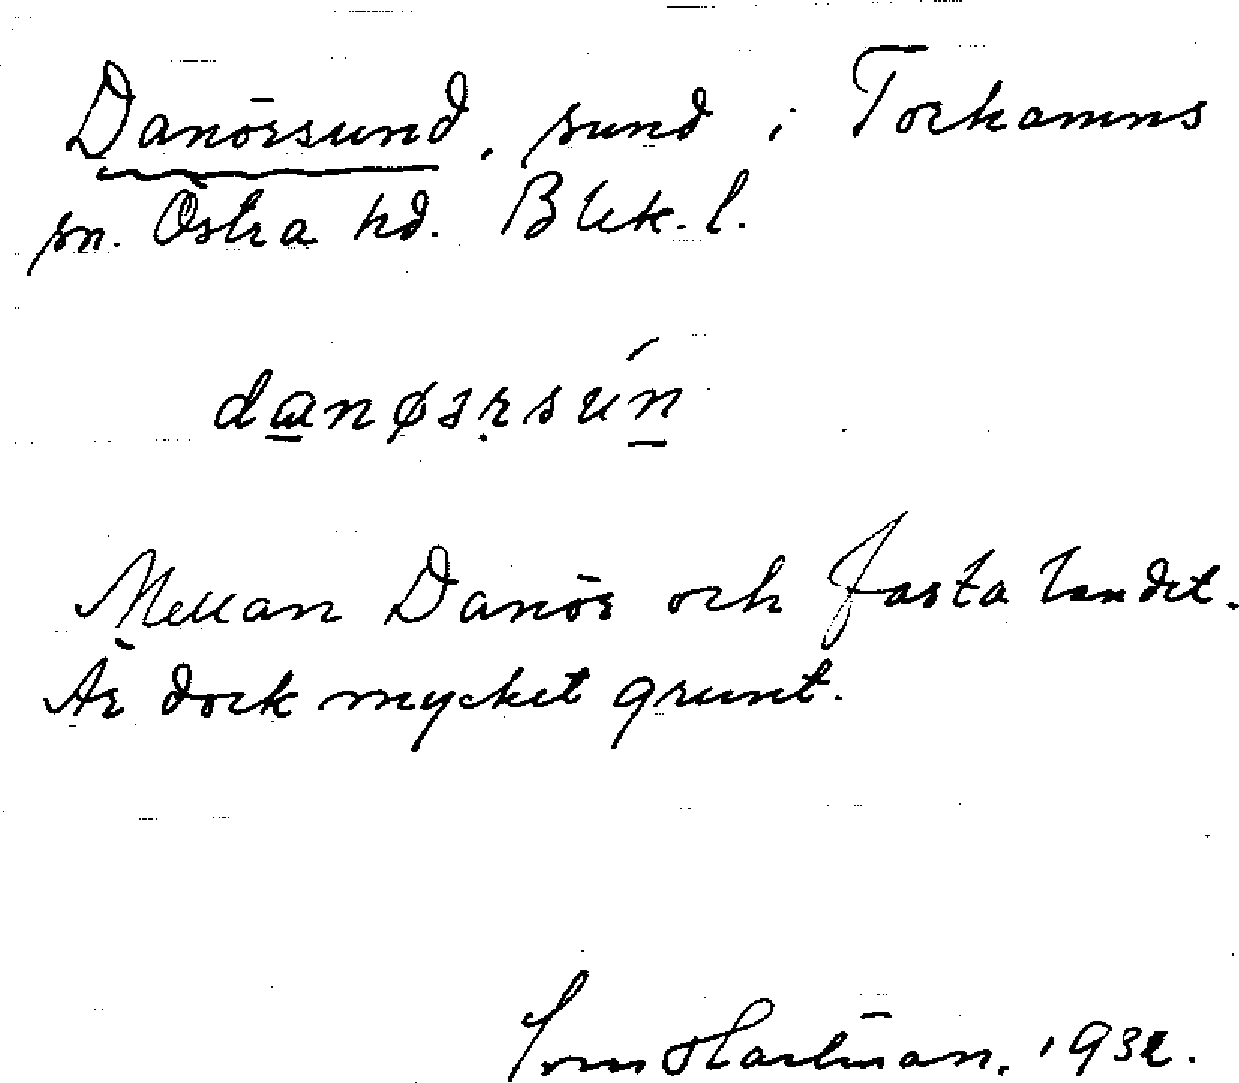 Danörsund, sund i Torhamns
sn. Östra hd. Blek. l.
danøərsún
Mellan Danör och fasta landet.
Är dock mycket grunt.
Hartman, 1932.